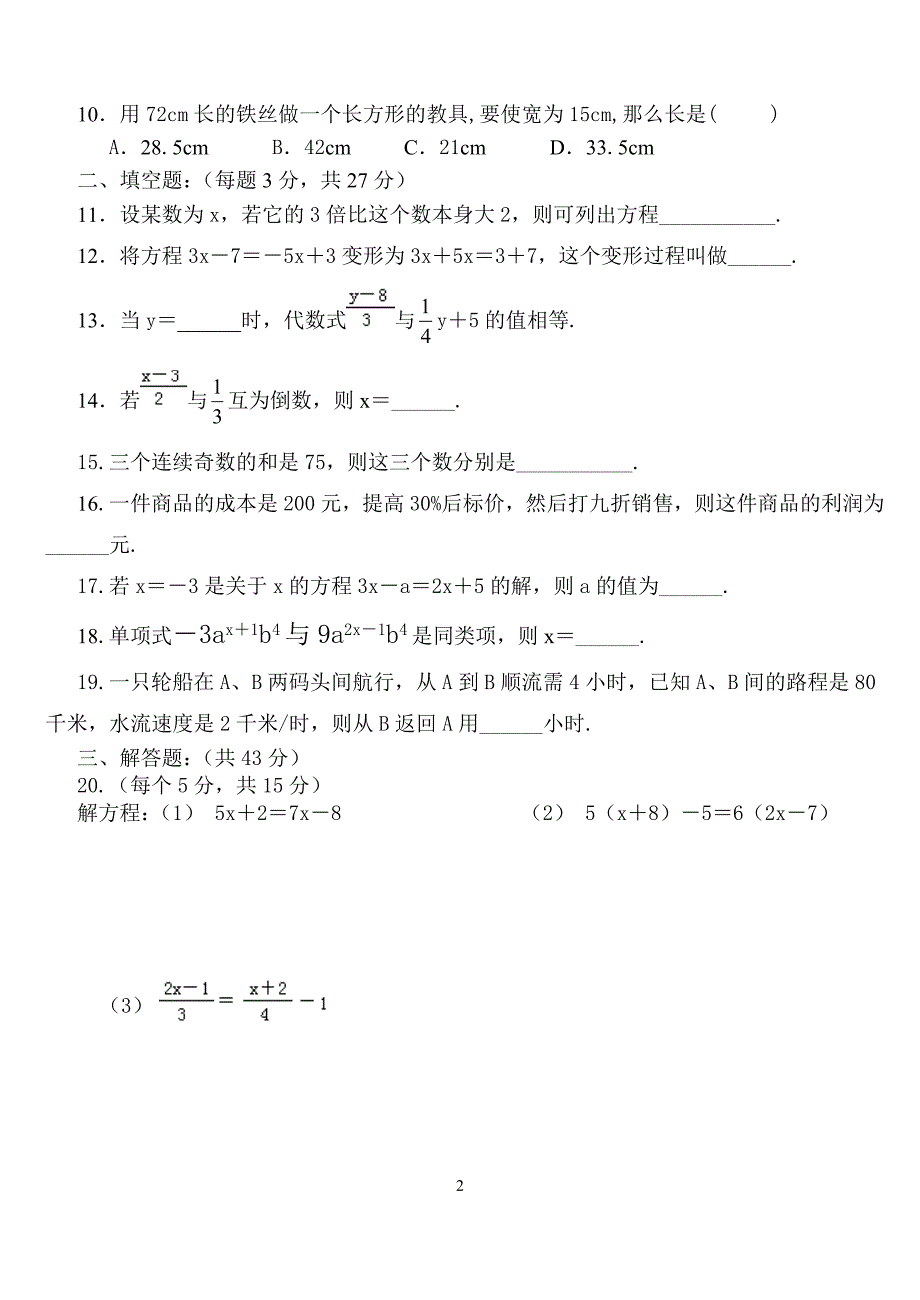 10．用72cm长的铁丝做一个长方形的教具,要使宽为15cm,那么长是(    )
A．28.5cm B．42cm C．21cm D．33.5cm
二、填空题：（每题3分，共27分）
11．设某数为x，若它的3倍比这个数本身大2，则可列出方程___________.
12．将方程3x－7＝－5x＋3变形为3x＋5x＝3＋7，这个变形过程叫做______.
13．当y＝______时，代数式(y－8)/3与1/4y＋5的值相等.
14．若(x－3)/2与1/3互为倒数，则x＝______.
15.三个连续奇数的和是75，则这三个数分别是___________.
16.一件商品的成本是200元，提高30%后标价，然后打九折销售，则这件商品的利润为
______元.
17.若x＝－3是关于x的方程3x－a＝2x＋5的解，则a的值为______.
18.单项式－3a^{x＋1}b^4与9a^{2x－1}b^4是同类项，则x＝______.
19.一只轮船在A、B两码头间航行，从A到B顺流需4小时，已知A、B间的路程是80
千米，水流速度是2千米/时，则从B返回A用______小时.
三、解答题：（共43分）
20.（每个5分，共15分）
解方程：（1） 5x＋2＝7x－8 （2） 5（x＋8）－5＝6（2x－7）
（3） (2x－1)/3＝(x＋2)/4－1
2